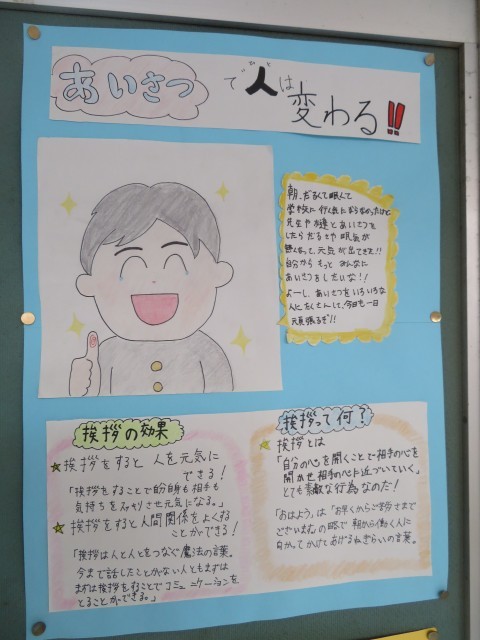 あいさつ で人は
変わる!!
朝、だるくて眠くて
学校に行く気にならなかったけど
先生や友達とあいさつを
したらだるさや眠気が
無くなって、元気が出てきた!!
自分からもっとみんなに
あいさつをしたいな!!
よーし、あいさつをいろいろな
人にたくさんして、今日も一日
頑張るぞ!!
挨拶の効果
挨拶をすると人を元気に
できる!
「挨拶をすることで自分自身も相手も
気持ちをスッキリさせ元気になる。」
挨拶をすると人間関係をよくする
ことができる!
「挨拶は人と人とをつなぐ魔法の言葉。
今まで話したことがない人ともまずは
まずは挨拶をすることでコミュニケーションを
とることができる。」
挨拶って何?
挨拶とは
「自分の心を開くことで相手の心を
開かせ相手の心に近づいていく」
とても素敵な行為なのだ!
「おはよう」は「お早くからご苦労さまで
ございます」の略で朝から働く人に
向かってかけてあげるねぎらいの言葉。